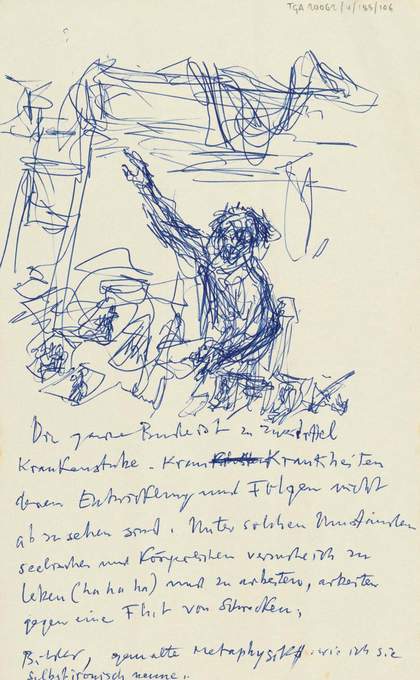 TGA 20062/4/185/106
Die ganze Bude ist zu zweidrittel
Krankenstube. Krankheiten
deren Entwicklung und Folgen nicht
abzusehen sind. Unter solchen Umständen
seelischen und Körperlichen versuche ich zu
leben (ha ha ha) und zu arbeiten, arbeiten
gegen eine Flut von Schrecken,
Bilder, gemalte Metaphysik wie ich sie
selbstironisch nenne.